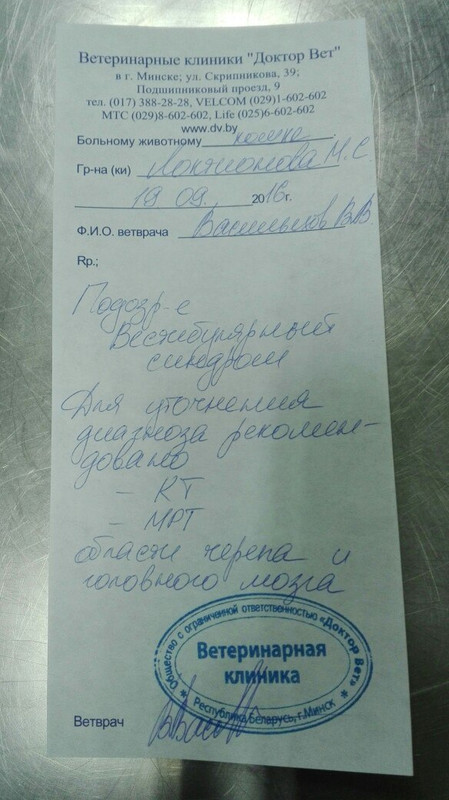 Ветеринарные клиники "Доктор Вет"
в г. Минске; ул. Скрипникова, 39;
Подшипниковый проезд, 9
тел. (017) 388-28-28, VELCOM (029)1-602-602
МТС (029)8-602-602, Life (025)6-602-602
www.dv.by
Больному животному кошке
Гр-на (ки) Локтионова М. С.
19 09. 2016г.
Ф.И.О. ветврача Васильков В.В.
Rp.;
Подозр-е
Вестибулярный
синдром
Для уточнения
диагноза рекомен-
довано
- КТ
- МРТ
области черепа и
головного мозга
Общество с ограниченной ответственностью «Доктор Вет»
Ветеринарная
клиника
* Республика Беларусь, г.Минск *
Ветврач